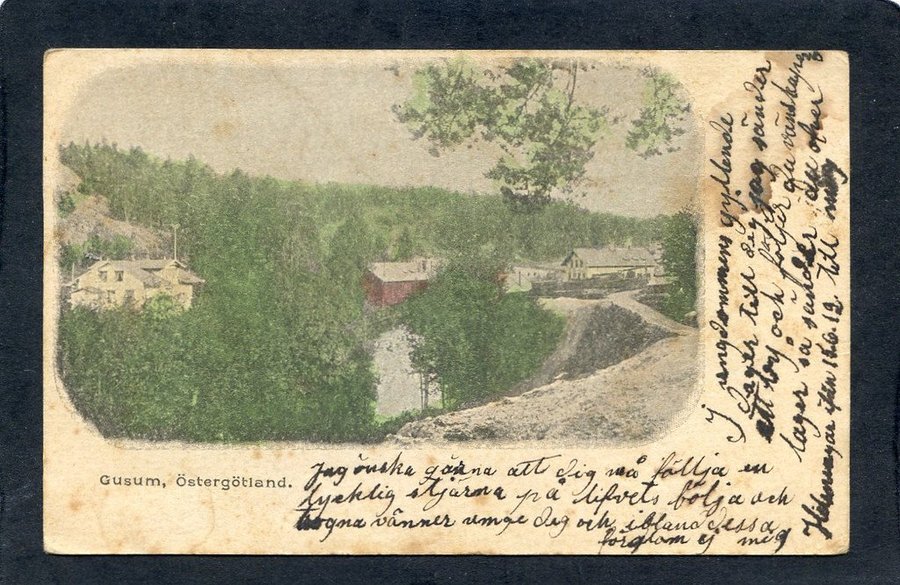 Gusum, Östergötland.
Jag önska gärna att dig må föttja en
lycklig stjärna på lifvets bölja och
hogna vänner umge deg och ibland dessa
förglöm ej mig
J ungdommens gyllende
dager till deg jag sänder
ett brj och följer du vänskapens
lager så sänder du ofver
Helsningar ifrån 12.6.12. till mig